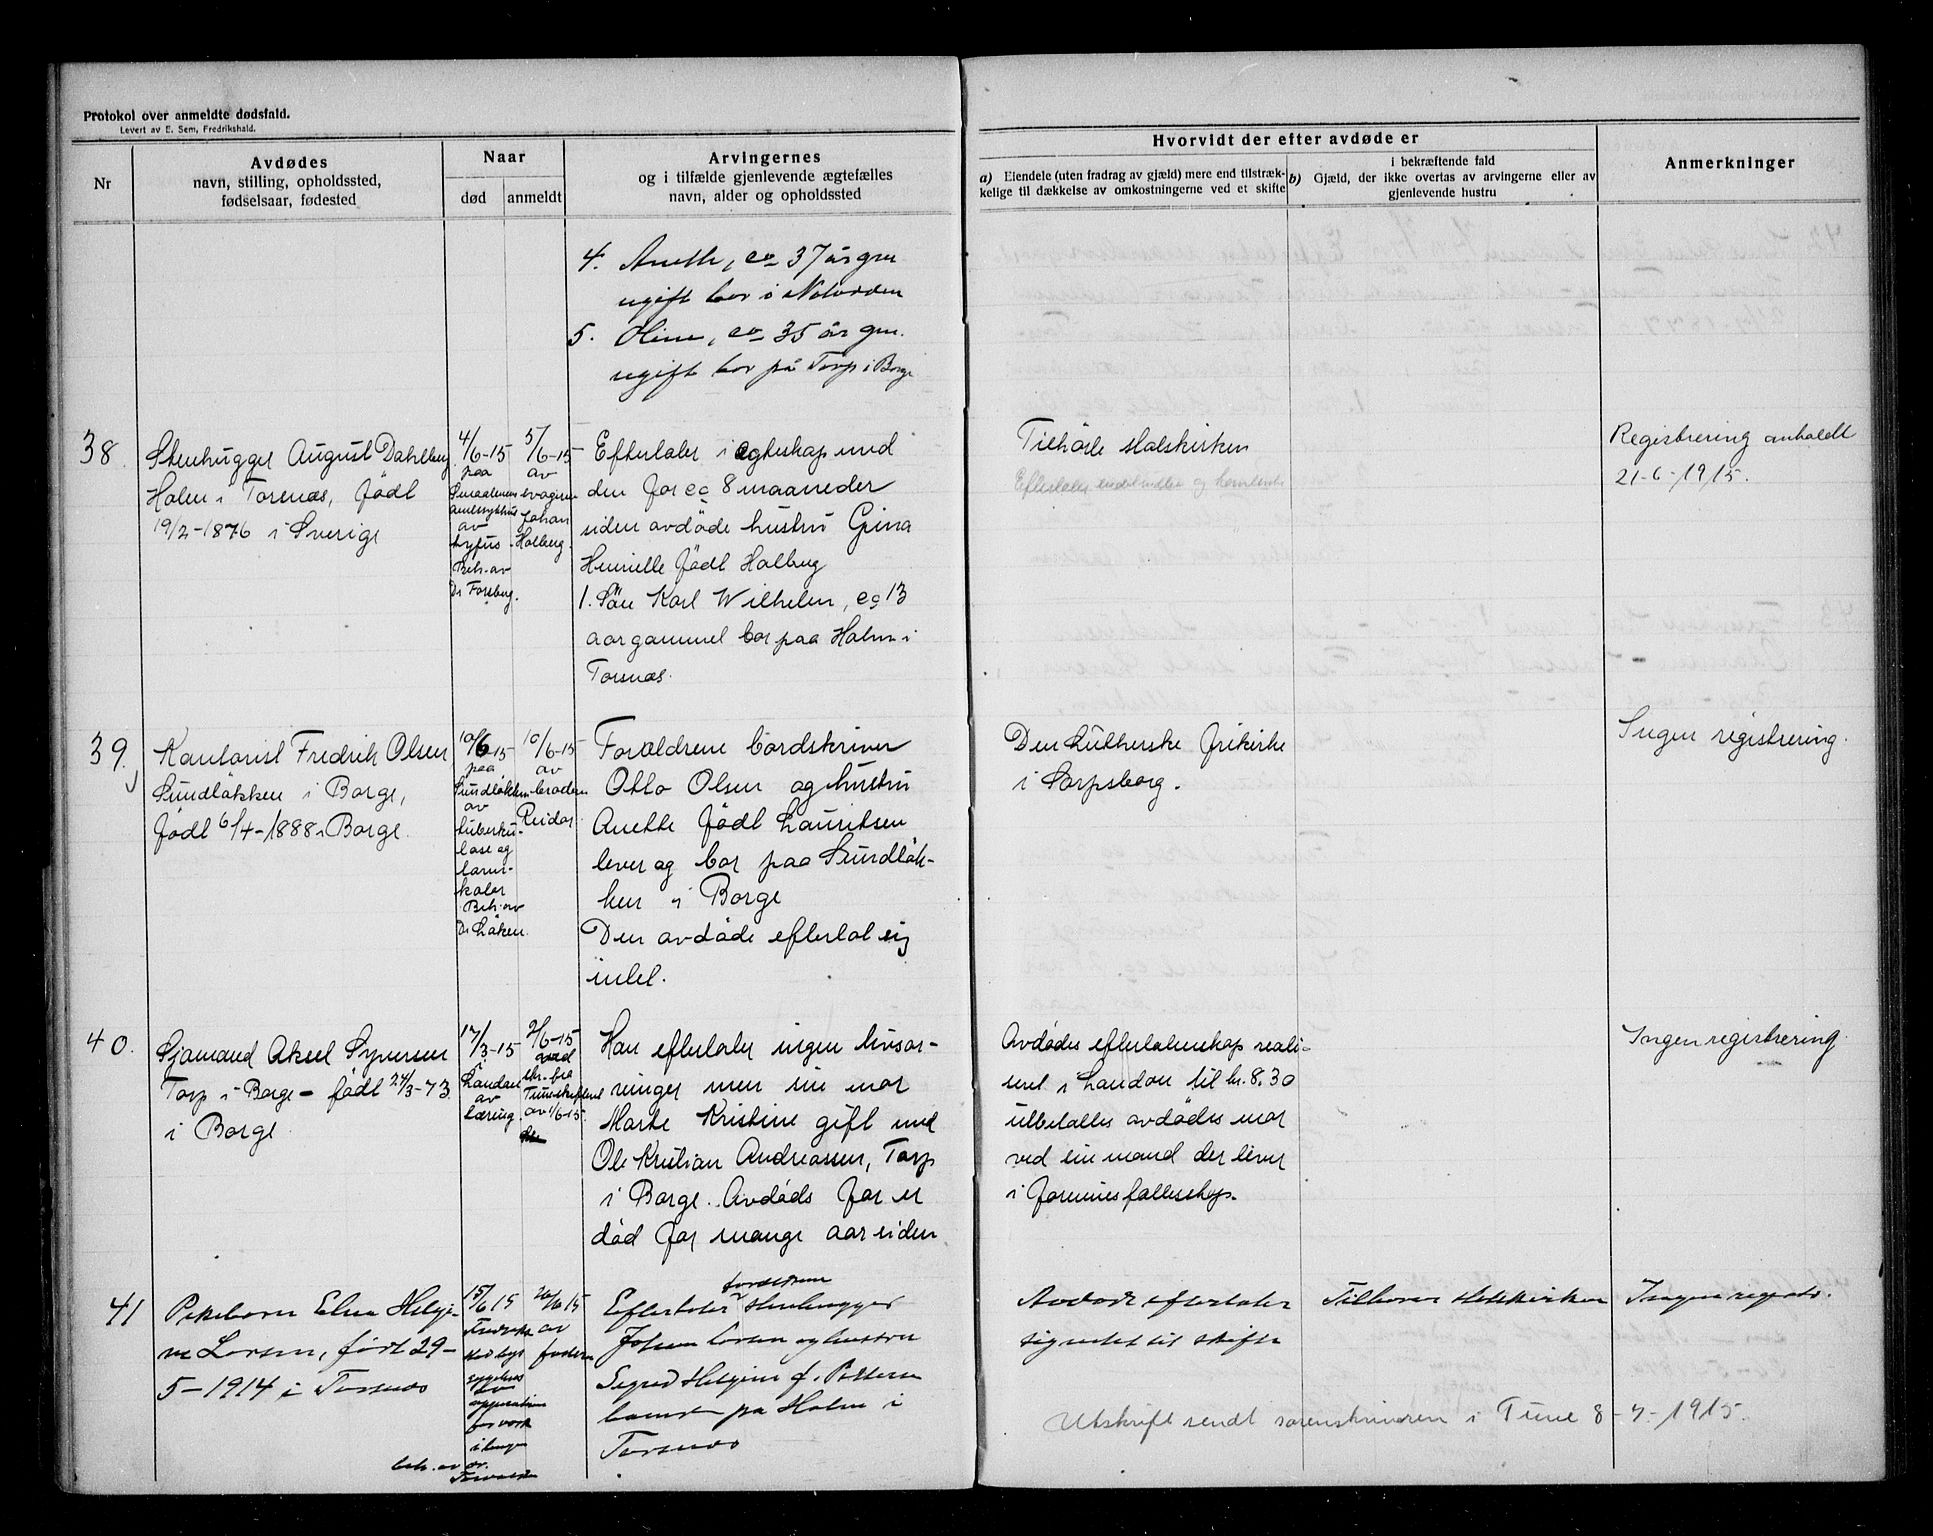 Protokol over anmeldte dødsfald.
Levert av E. Sem, Fredrikshald.
Nr
Avdødes
navn, stilling, opholdssted,
fødselsaar, fødested
Naar
død
anmeldt
Arvingernes
og i tilfælde gjenlevende ægtefælles
navn, alder og opholdssted
Hvorvidt der efter avdøde er
a) Eiendele (uten fradrag av gjæld) mere end tilstræk-
kelige til dækkelse av omkostningerne ved et skifte
i bekræftende fald
b) Gjæld, der ikke overtas av arvingerne eller av
gjenlevende hustru
Anmerkninger
4. Anette, ca 37 år gm
ugift bor i Notodden
5. Oline, ca 35 år gm.
ugift bor på Torp i Borge
38.
Stenhugger August Dahlberg
Holm i Torsnæs, født
19/2-1876 i Sverige
4/6-15
paa
Smaalenens
amtssykehus
av
tyfus
Beh. av
Dr Forsberg.
5/6-15
av
svogeren
Johan
Holberg.
Efterlater i egteskap med
den for ca 8 maaneder
siden avdøde hustru Gina
Henriette født Holberg
1. Søn Karl Wilhelm, ca 13
aar gammel bor paa Holm i
Torsnæs.
Tilhørte statskirken
Registrering anholdt
21-6-1915.
39.
Kontorist Fredrik Olsen
Sundløkken i Borge,
født 6/4-1888 i Borge.
10/6-15
paa
Sundløkken
av
tuberku-
lose og
tarm-
katar
Beh. av
Dr Løken.
10/6-15
av
broderen
Reidar.
Forældrene bordskriver
Otto Olsen og hustru
Anette født Lauritsen
lever og bor paa Sundløk-
ken i Borge
Den avdøde efterlot sig
intet.
Den lutherske frikirke
i Sarpsborg.
Ingen registrering.
40.
Sjømand Aksel Syversen
Torp i Borge - født 24/3-73
i Borge
17/3-15
i
London
av
tæring.
2/6-15
skr. fra
Tuneskifteret
av 1/6-15.
Han efterlater ingen livsar-
vinger men sin mor
Marte Kristine gift med
Ole Kristian Andreassen, Torp
i Borge. Avdøds far er
død for mange aar siden
Avdødes efterlatenskap reali-
sert i London til kr. 8,30
utbetaltes avdødes mor
ved sin mand der lever
i formuesfællesskap.
Ingen registrering
41
Pikebarn Elna Helgi-
ne Larsen, født 29-
5-1914 i Torsnæs
15/6 15
Fredrik-
stad bys
sygehus
av
operation
for værk
i lungen
beh. av dr.
20/6 15
av
faderen
Efterlater forældrene stenhugger
Johan Larsen og hustru
Sigrid Helgine f. Pettersen
boende på Holm i
Torsnæs
Avdøde efterlater
sig intet til skifte
Tilhører statskirken
Ingen registr.
Utskrift sendt sorenskriveren i Tune 8-7-1915.